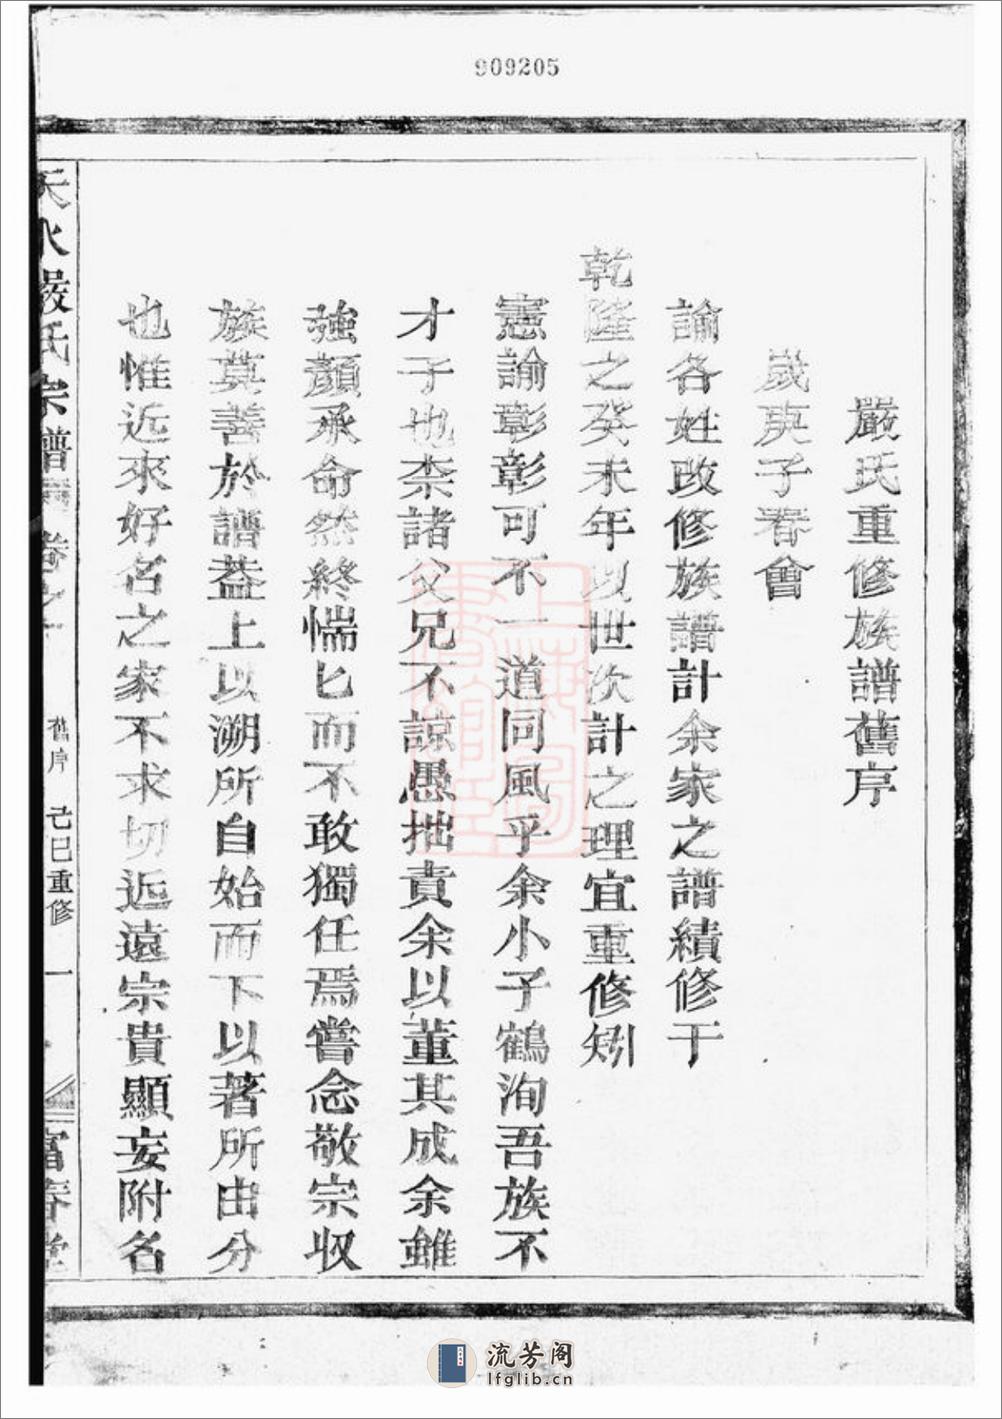 909205
嚴氏重修族譜舊序
歲庚子春會
諭各姓改修族譜計余家之譜績修于
乾隆之癸未年以世次計之理宜重修矧
憲諭彰彰可不一道同風乎余小子鶴洵吾族不
才子也柰諸父兄不諒愚拙責余以董其成余雖
強顏承命然終惴匕而不敢獨任焉嘗念敬宗収
族莫善於譜葢上以溯所自始而下以著所由分
也惟近來好名之家不求切近遠宗貴顯妄附名
天水嚴氏宗譜 卷之 舊序 己巳重修 一 富春堂
流芳阁
lfglib.cn